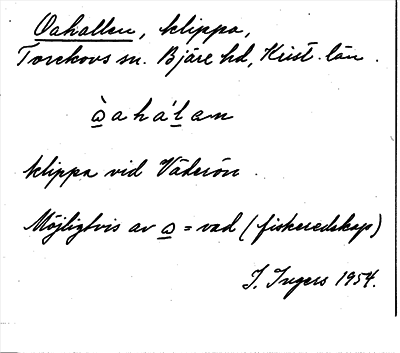 Oahallen, klippa,
Torekovs sn. Bjäre hd, Krist. län.
òahálan
klippa vid Väderön.
Möjligtvis av o = vad (fiskeredskap)
I. Ingers 1954.